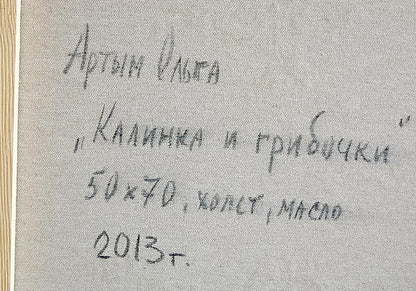 Артым Олька
„Калинка и грибочки"
50x70, холст, масло
2013 г.